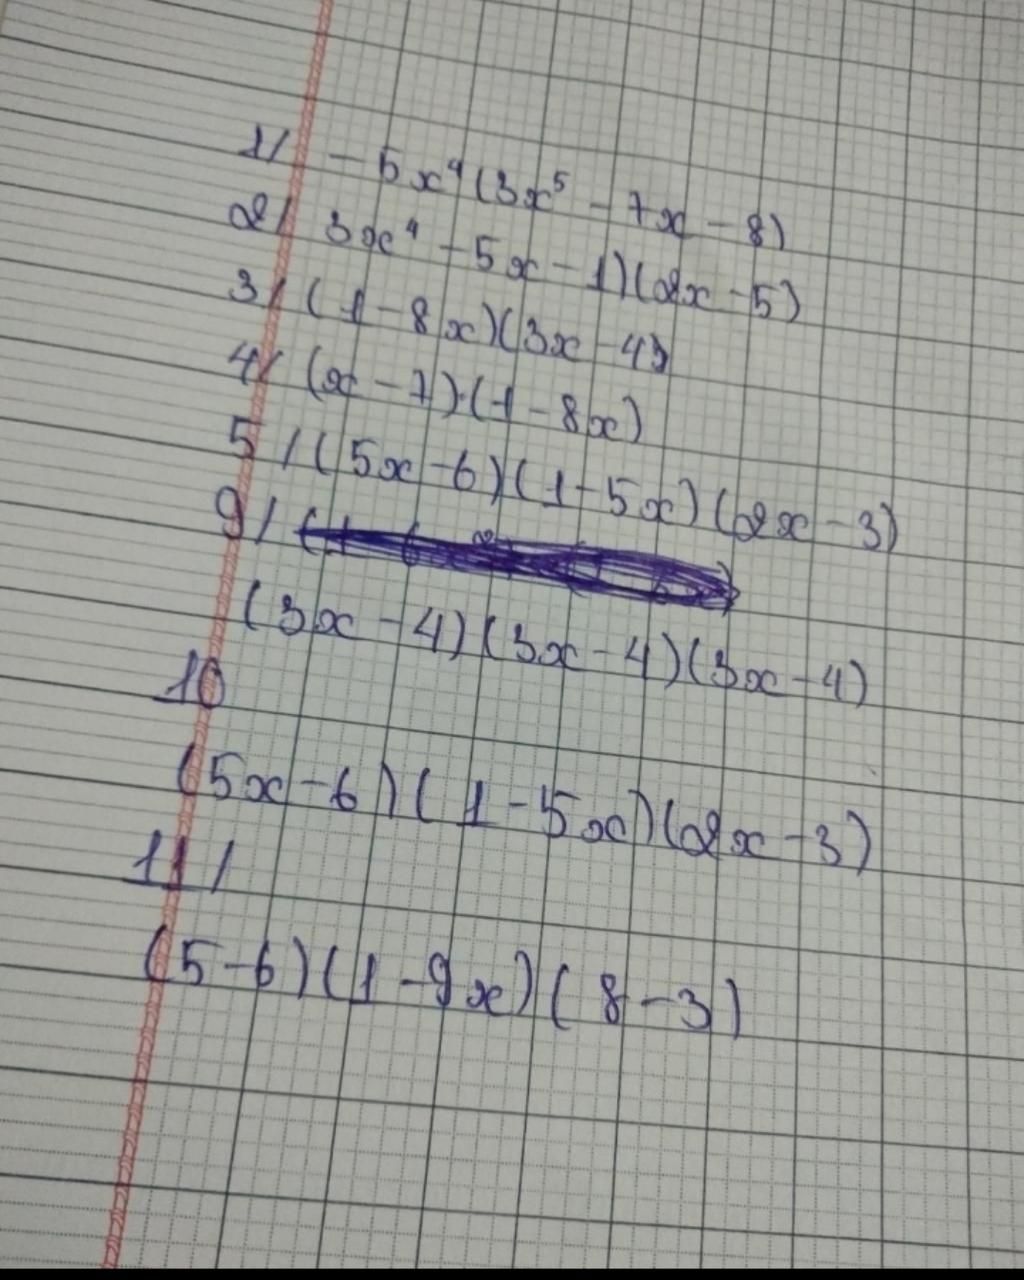 1/ -5x⁴(3x⁵ - 7x - 8)
2/ 3x⁴ - 5x - 1)(2x - 5)
3/ (1 - 8x)(3x - 4)
4/ (x - 7)·(1 - 8x)
5/ (5x - 6)(1 - 5x)(2x - 3)
9/
(3x - 4)(3x - 4)(3x - 4)
10
(5x - 6)(1 - 5x)(2x - 3)
11/
(5 - 6)(1 - 9x)(8 - 3)